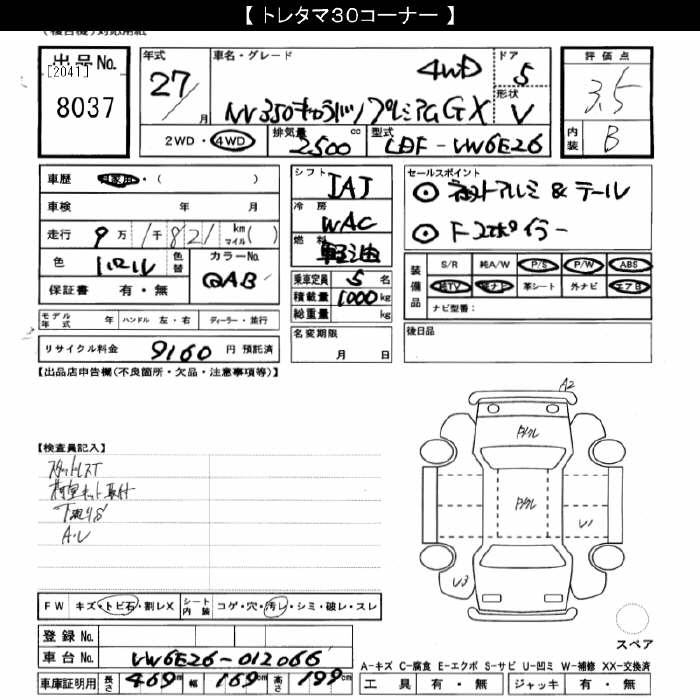 【トレタマ30コーナー】
(複合機)対応用紙
出品No.
[2041]
8037
年式
27/月
車名・グレード
4WD
NV350キャラバン プレミアムGX
ドア
5
形状
V
2WD・4WD
排気量
2500
cc
型式
LDF-VW6E26
評価点
3.5
内装
B
車歴
自家用・( )
車検 年 月
走行 9万 1千 821 km マイル( )
色 パール 色替
カラーNo.
QAB
保証書 有・無
シフト
IAT
冷房
WAC
燃料
軽油
乗車定員 5名
積載量 1000kg
総重量 kg
セールスポイント
アルミ & テール
Fスポイラー
装備品
S/R 純A/W P/S P/W ABS
純TV 純ナビ 革シート 外ナビ エアB
ナビ型番:
モデル年式 年 ハンドル 左・右 ディーラー・並行
リサイクル料金 9160 円 預託済
名変期限
月 日
後日品
【出品店申告欄(不良箇所・欠品・注意事項等)】
【検査員記入】
スタッドレスT
荷室キット取付
下廻りS
A・U
A2
U1
U3
スペア
FW キズ・トビ石・割レX
シート内装 コゲ・穴・汚レ・シミ・破レ・スレ
登録No.
車台No. VW6E26-012066
車庫証明用 長さ 469cm 幅 169cm 高さ 199cm
A-キズ C-腐食 E-エクボ S-サビ U-凹ミ W-補修 XX-交換済
工具 有・無 ジャッキ 有・無